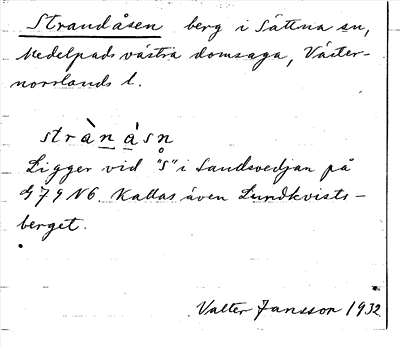 Strandåsen berg i Sättna sn,
Medelpads västra domsaga, Väster-
norrlands l.
stràn ásn̥
Ligger vid "S" i Sandsvedjan på
G 79 N6. Kallas även Lundkvists-
berget.
Valter Jansson 1932